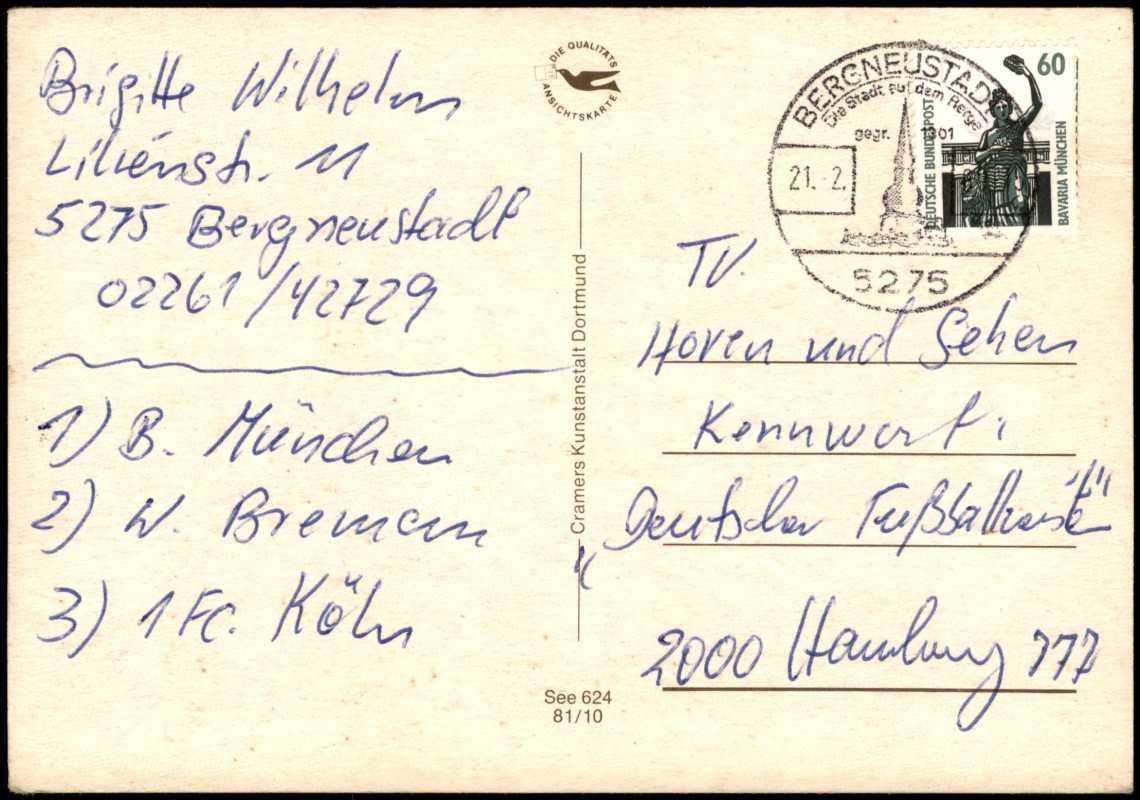 Brigitte Wilhelm
Lilienstr. 11
5275 Bergneustadt
02261/42729
1) B. München
2) W. Bremen
3) 1 FC. Köln
DIE QUALITÄTS
ANSICHTSKARTE
Cramers Kunstanstalt Dortmund
See 624
81/10
BERGNEUSTADT
Die Stadt auf dem Berge
gegr. 1301
21. -2.
5275
60
DEUTSCHE BUNDESPOST
BAVARIA MÜNCHEN
TV.
Hören und Sehen
Kennwort:
"Deutscher Fußballmeister"
2000 Hamburg 777